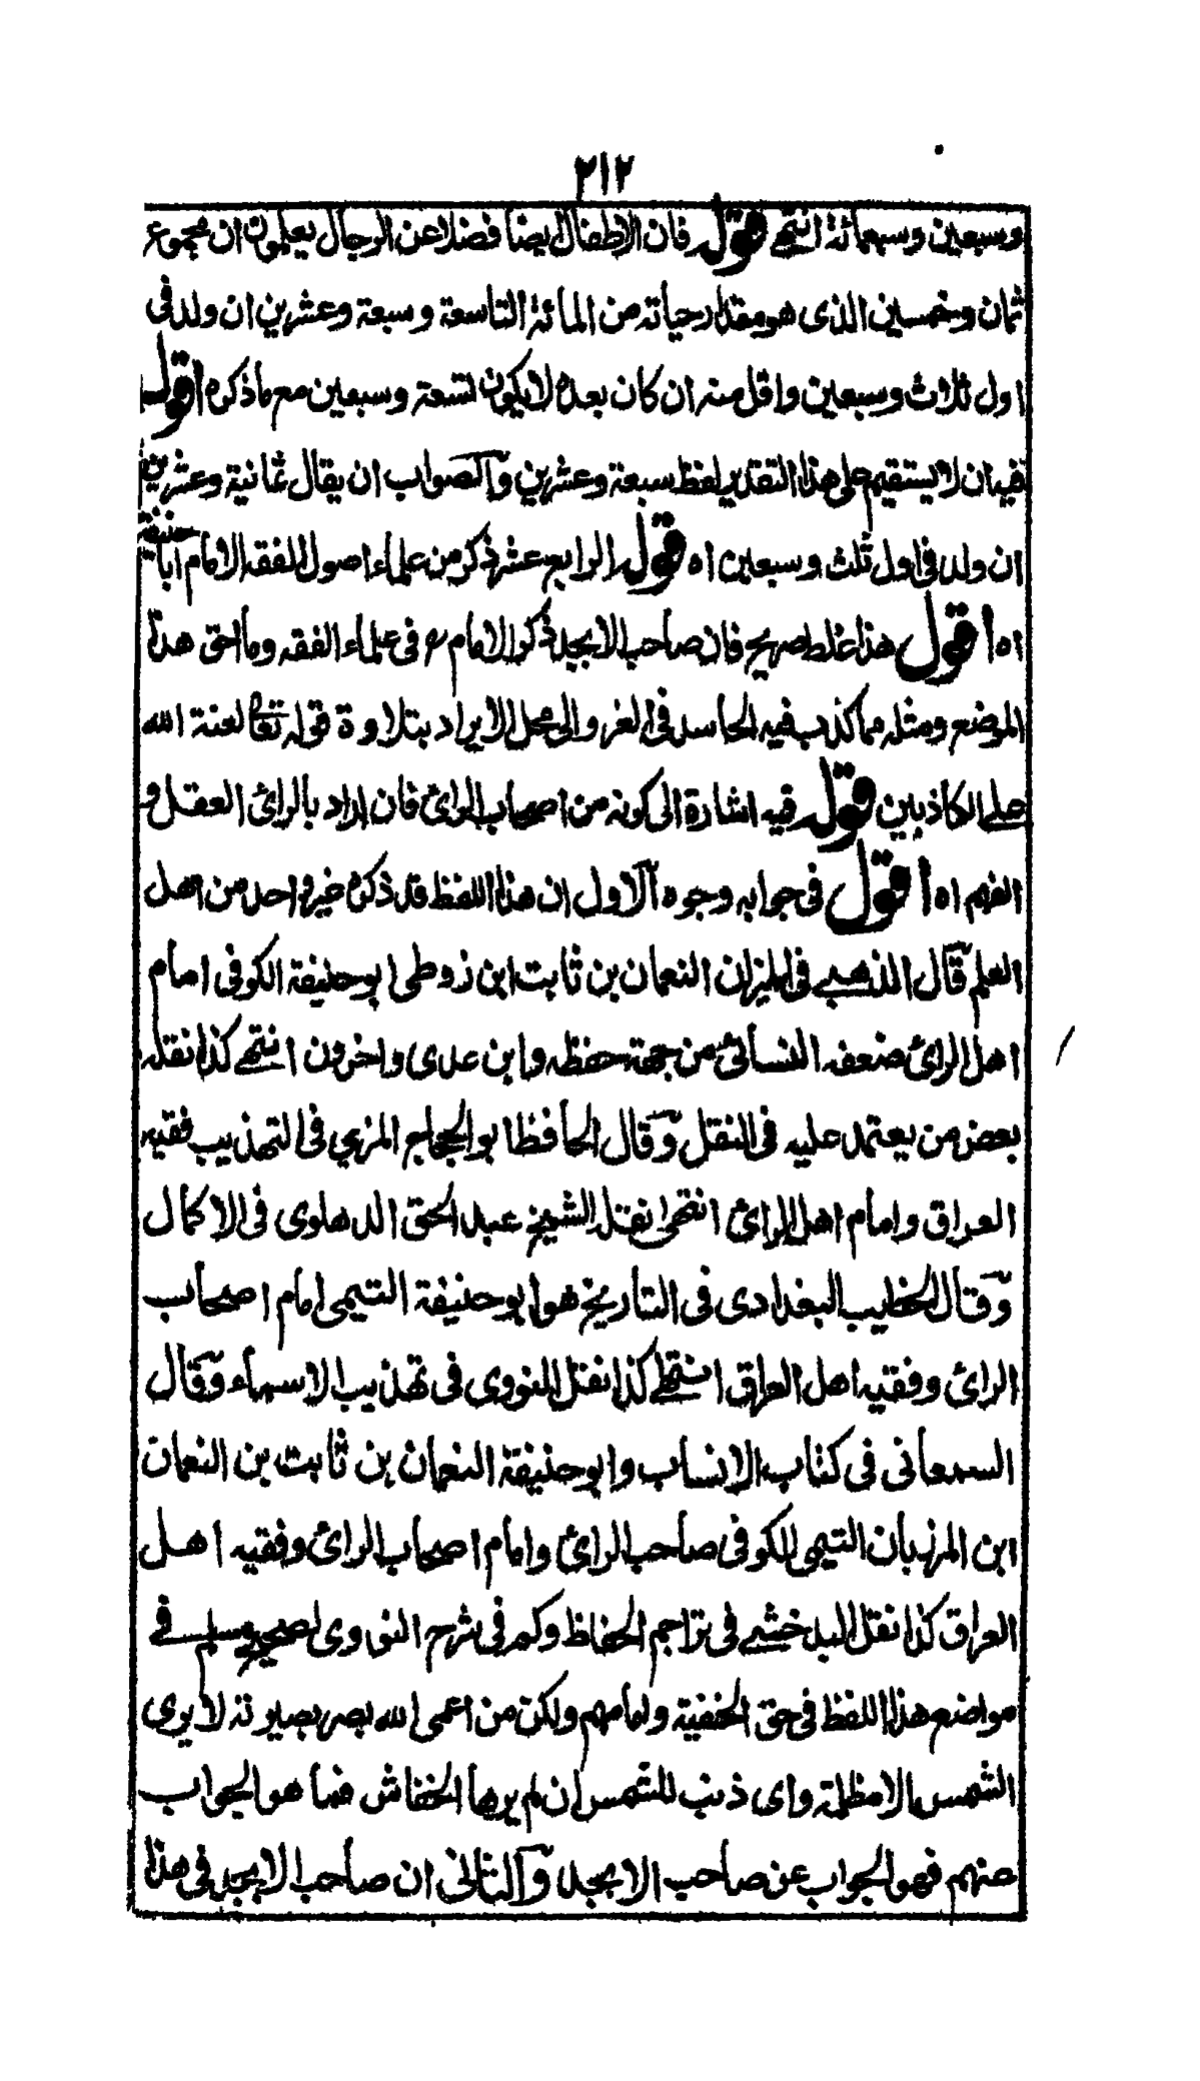 ٢١٢
وسبعين وسبعمائة انتهى قوله فان الاطفال ايضا فضلا عن الرجال يعلمون ان مجموع
ثمان وخمسين الذى هو مقدار حياته من المائة التاسعة وسبعة وعشرين ان ولد فى
اول ثلاث وسبعين واقل منه ان كان بعده لا يكون تسعة وسبعين مع ما ذكره اقول
فيه ان لا يستقيم على هذا التقدير لفظ سبعة وعشرين والصواب ان يقال ثمانية وعشرين
ان ولد فى اول ثلث وسبعين اه قوله الرابع عشر ذكر من علماء اصول الفقه الامام ابا حنيفة
اه اقول هذا غلط صريح فان صاحب الابجد ذكر الامام رح فى علماء الفقه وما احق هذا
الموضع ومثله مما كذب فيه الحاسد فى العزو الى محل الايراد بتلاوة قوله تعالى لعنة الله
على الكاذبين قوله فيه اشارة الى كونه من اصحاب الرائ فان اراد بالرائ العقل و
الفهم اه اقول فى جوابه وجوه الاول ان هذا اللفظ قد ذكره غير واحد من اهل
العلم قال الذهبى فى الميزان النعمان بن ثابت ابن زوطى ابو حنيفة الكوفى امام
اهل الرائ ضعفه النسائى من جهة حفظه وابن عدى واخرون انتهى كذا نقله
بعض من يعتمد عليه فى النقل وقال الحافظ ابو الحجاج المزي فى التهذيب فقيه
العراق وامام اهل الرائ انتهى نقله الشيخ عبد الحق الدهلوى فى الاكمال
وقال الخطيب البغدادى فى التاريخ هو ابو حنيفة التيمى امام اصحاب
الرائ وفقيه اهل العراق انتهى كذا نقل النووى فى تهذيب الاسماء وقال
السمعانى فى كتاب الانساب وابو حنيفة النعمان بن ثابت بن النعمان
ابن المرزبان التيمى الكوفى صاحب الرائ وامام اصحاب الرائ وفقيه اهل
العراق كذا نقل البدخشى فى تراجم الحفاظ وكم فى شرح النووى لصحيح مسلم فى
مواضع هذا اللفظ فى حق الحنفية وامامهم ولكن من اعمى الله بصر بصيرته لا يرى
الشمس الا مظلمة واى ذنب للشمس ان لم يرها الخفاش فما هو الجواب
عنهم فهو الجواب عن صاحب الابجد والثانى ان صاحب الابجد فى هذا